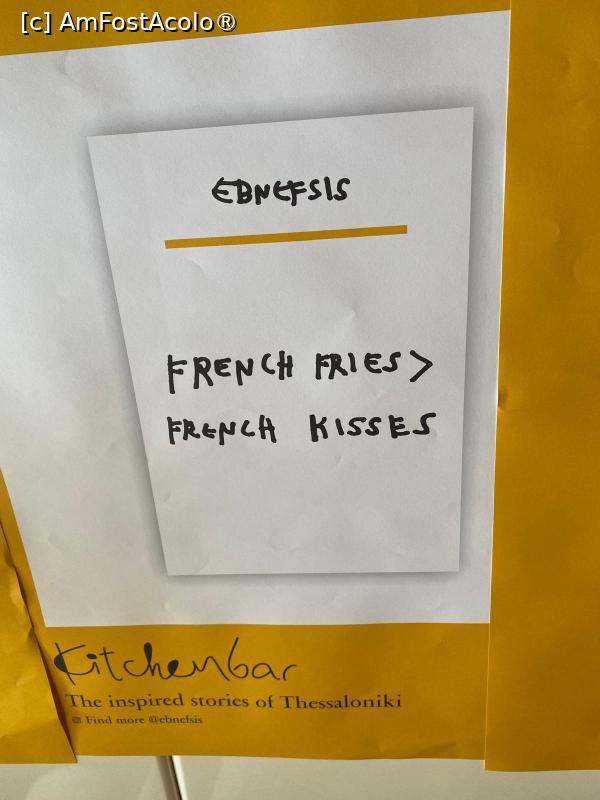 [c] AmFostAcolo®
EBNEFSIS
FRENCH FRIES >
FRENCH KISSES
Kitchenbar
The inspired stories of Thessaloniki
Find more @ebnefsis